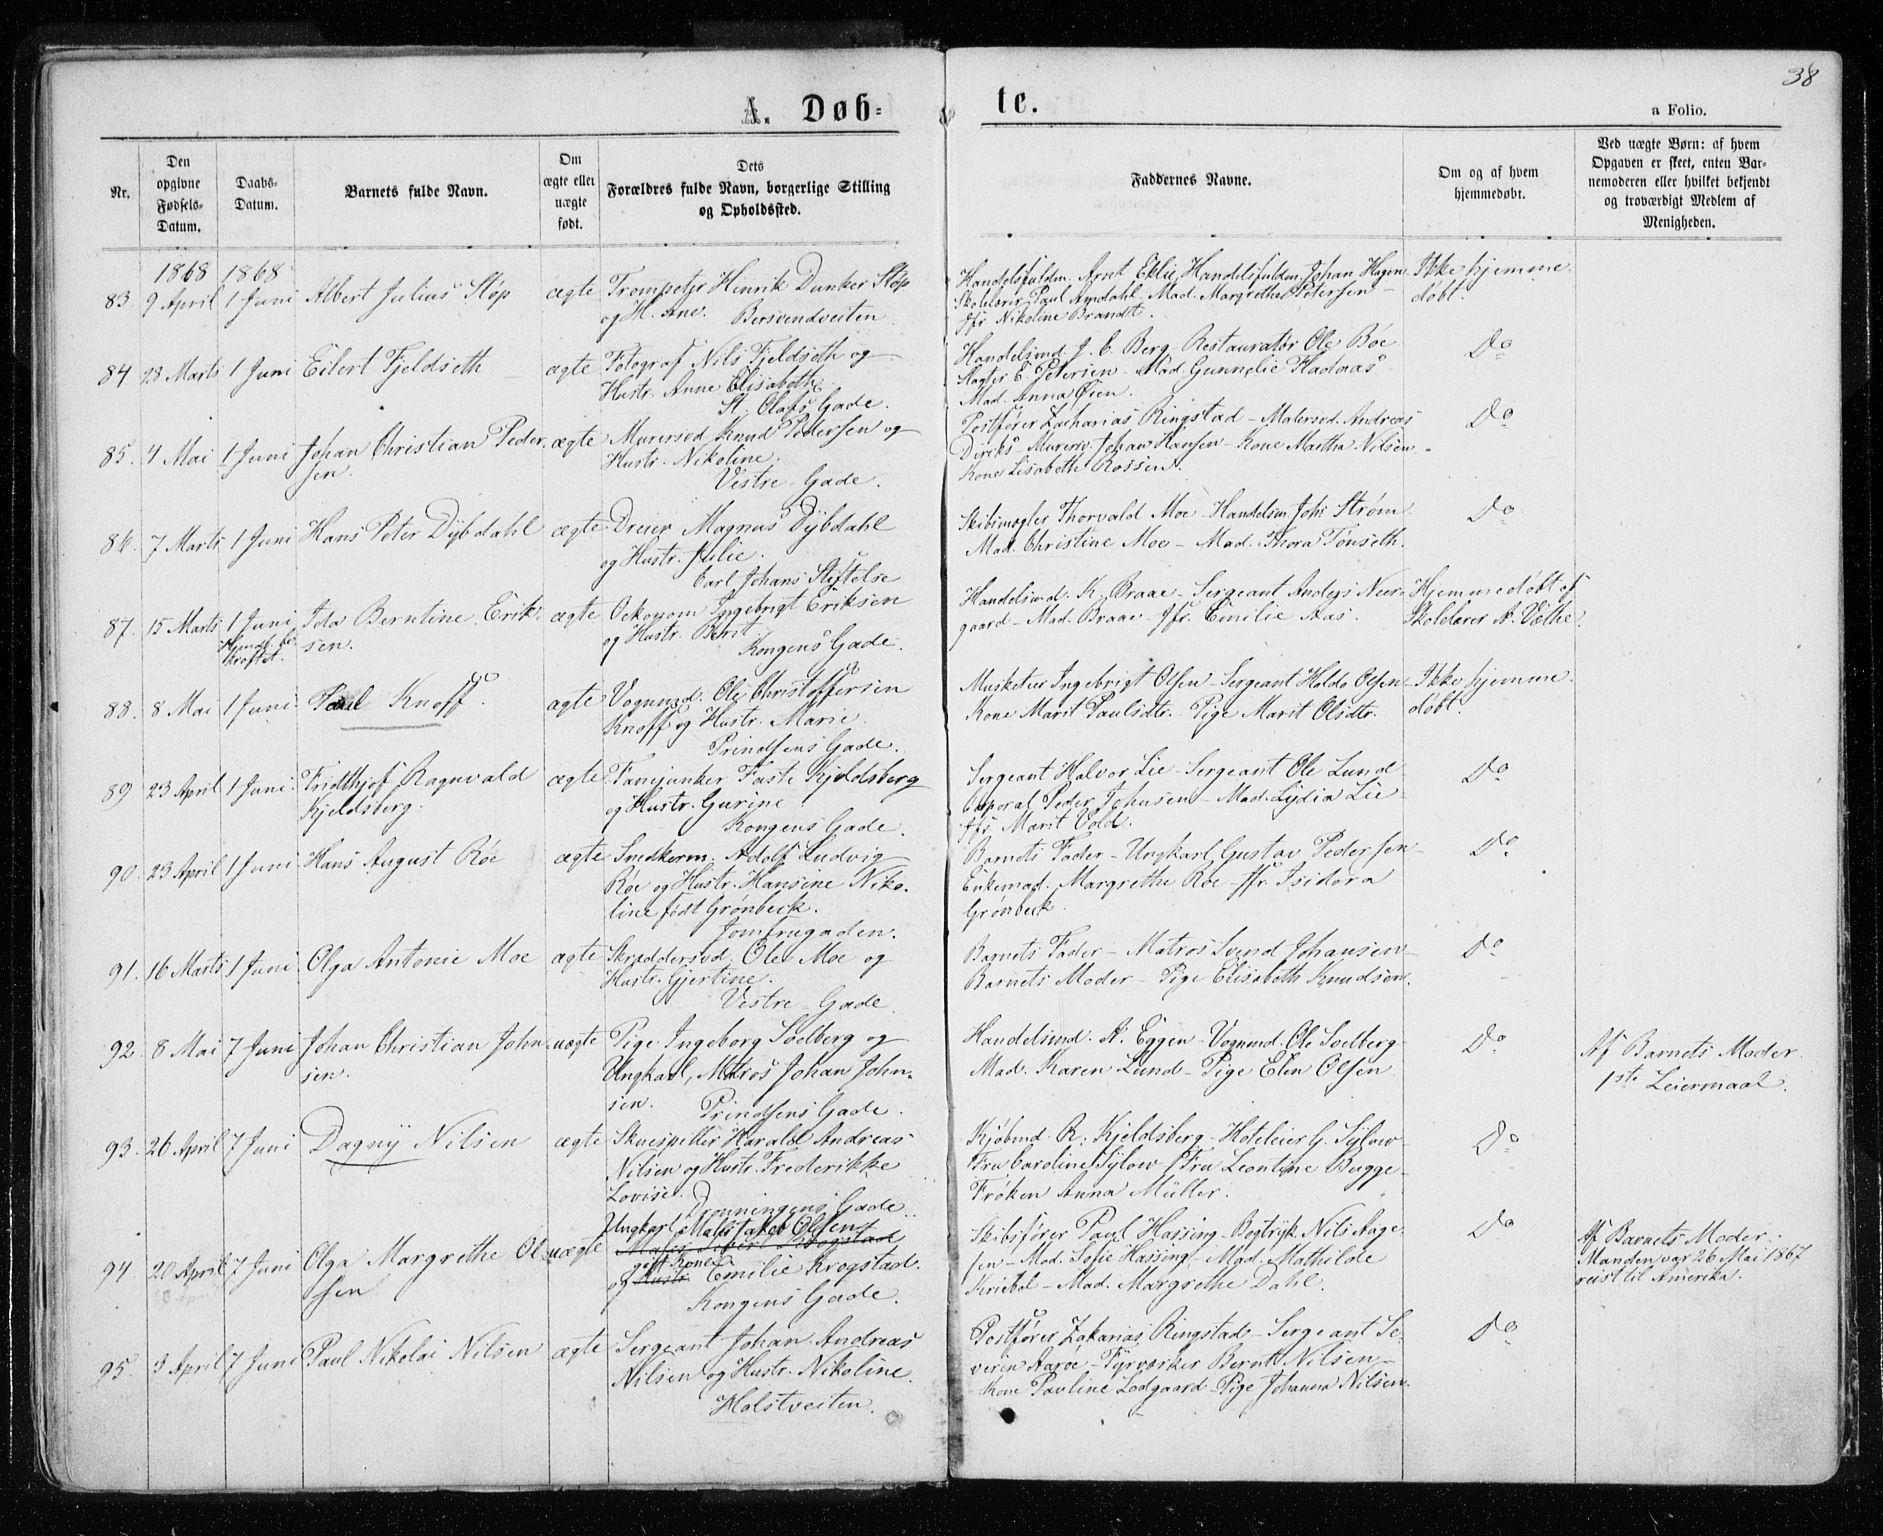 38
A. Døb-
te.
a Folio.
Nr.
Den opgivne Fødsels-Datum.
Daabs-Datum.
Barnets fulde Navn.
Om ægte eller uægte født.
Dets Forældres fulde Navn, borgerlige Stilling og Opholdssted.
Faddernes Navne.
Om og af hvem hjemmedøbt.
Ved uægte Børn: af hvem Opgaven er skeet, enten Barnemoderen eller hvilket bekjendt og troværdigt Medlem af Menigheden.
1868 1868
83. 9 April 1 Juni Albert Julius Støp ægte Trompetjr Hinrik Dunker Støp
og H. Ane. Bersvendveiten
Handelsfuldm. Arnt Eklie, Handelsfuldm. Johan Hagen
Skolelærer Paul Amdahl. Mad. Margrethe Petersen
Jfr Nikoline Brandt.
Ikke hjemme
døbt.
84 28 Marts 1 Juni Eilert Fjeldseth ægte Fotograf Nils Fjeldseth og
Hustr. Anne Elisabeth
St. Olafs Gade.
Handelsmd J. C. Berg. Restauratør Ole Bøe
Slagter E. Petersen - Mad. Gunnelie Hadaas
Mad. Anna Øien.
Do
85. 4 Mai 1 Juni Johan Christian Peder-
sen. ægte Murersvd Knud Pedersen og
Hustr. Nikoline.
Vestre Gade.
Postfører Zacharias Ringstad - Malersvd. Andreas
Diriks - Murersv. Johan Hansen - Kone Martha Nilsen -
Kone Lisabeth Rossen.
Do
86. 7 Marts 1 Juni Hans Peter Dybdahl ægte Dreier Magnus Dybdahl
og Hustr. Julie.
Carl Johans Stiftelse
Skibsmægler Thorvald Moe - Handelsm. Johs Strøm
Mad. Christine Moe - Mad. Thora Tønseth.
Do
87. 15 Marts 1 Juni Ida Berntine Erik-
sen. ægte Oekonom Ingebrigt Eriksen
og Hustr. Berit
Kongens Gade.
Hjmdb. be-
kræftet.
Handelsmd. K. Braae - Sergeant Anders Neer-
gaard - Mad. Braae - Jfr. Emilie Aas.
Hjemmedøbt af
Skolelærer A. Væthe.
88. 8 Mai 1 Juni Paul Knoff. ægte Vognmd. Ole Christoffersen
Knoff og Hustr. Marie.
Prindsens Gade.
Musketer Ingebrigt Olsen - Sergeant Holdo Olsen
Kone Marit Paulsdtr. - Pige Marit Olsdtr.
Ikke hjemme
døbt.
89 23 April 1 Juni Fridthjof Ragnvald
Kjeldsberg. ægte Fanejunker Faste Kjeldsberg
og Hustr. Gurine
Kongens Gade.
Sergeant Halvor Lie - Sergeant Ole Lund
Corporal Peder Johnsen - Mad. Lydia Lie -
Jfr. Marit Vold.
Do
90. 23 April 1 Juni Hans August Röe ægte Snedkerm. Adolf Ludvig
Röe og Hustr. Hansine Niko-
line født Grønbeck.
Jomfrugaden.
Barnets Fader - Ungkarl Gustav Pedersen
Enkemad. Margrethe Roe - Jfr. Isidora
Grønbeck
Do
91. 16 Marts 1 Juni Olga Antonie Moe ægte Skræddersvd. Ole Moe og
Hustr. Gjertine.
Vestre Gade
Barnets Fader - Matros Svend Johansen
Barnets Moder - Pige Elisabeth Knudsen.
Do
92. 8 Mai 7 Juni Johan Christian John-
sen. uægte Pige Ingeborg Soelberg og
Ungkarl, Matros Johan John-
sen. Prindsens Gade.
Handelsmd. A. Eggen - Vognmd. Ole Soelberg
Mad. Karen Lund - Pige Elen Olsen
Do
Af Barnets Moder.
1ste Leiermaal.
93. 26 April 7 Juni Dagny Nilsen ægte Skuespiller Harald Andreas
Nilsen og Hustr. Frederikke
Lovise. Dronningens Gade.
Kjøbmd. R. Kjeldsberg - Hoteleier G. Sylow
Fru Caroline Sylow - Fru Leontine Bugge
Frøken Anna Müller.
Do
94. 20 April 7 Juni Olga Margrethe Ol-
sen uægte Ungkarl Maler Jakob Olsen
gift Kone
og Hustr. Emilie Krogstad.
Kongens Gade.
Skibsfører Paul Hassing - Bogtryk. Nils Aage-
sen - Mad. Sofie Hassing - Mad. Mathilde
Kriebel - Mad. Margrethe Dahl.
Do
Af Barnets Moder.
Manden var 26 Mai 1867
reist til Amerika.
95. 3 April 7 Juni Paul Nikolai Nilsen ægte Sergeant Johan Andreas
Nilsen og Hustr. Nikoline.
Holstveiten.
Postfører Zakarias Ringstad - Sergeant Se-
verin Aaroe - Fyrværker Bernt Nilsen -
Kone Pauline Lodgaard - Pige Johanna Nilsen.
Do